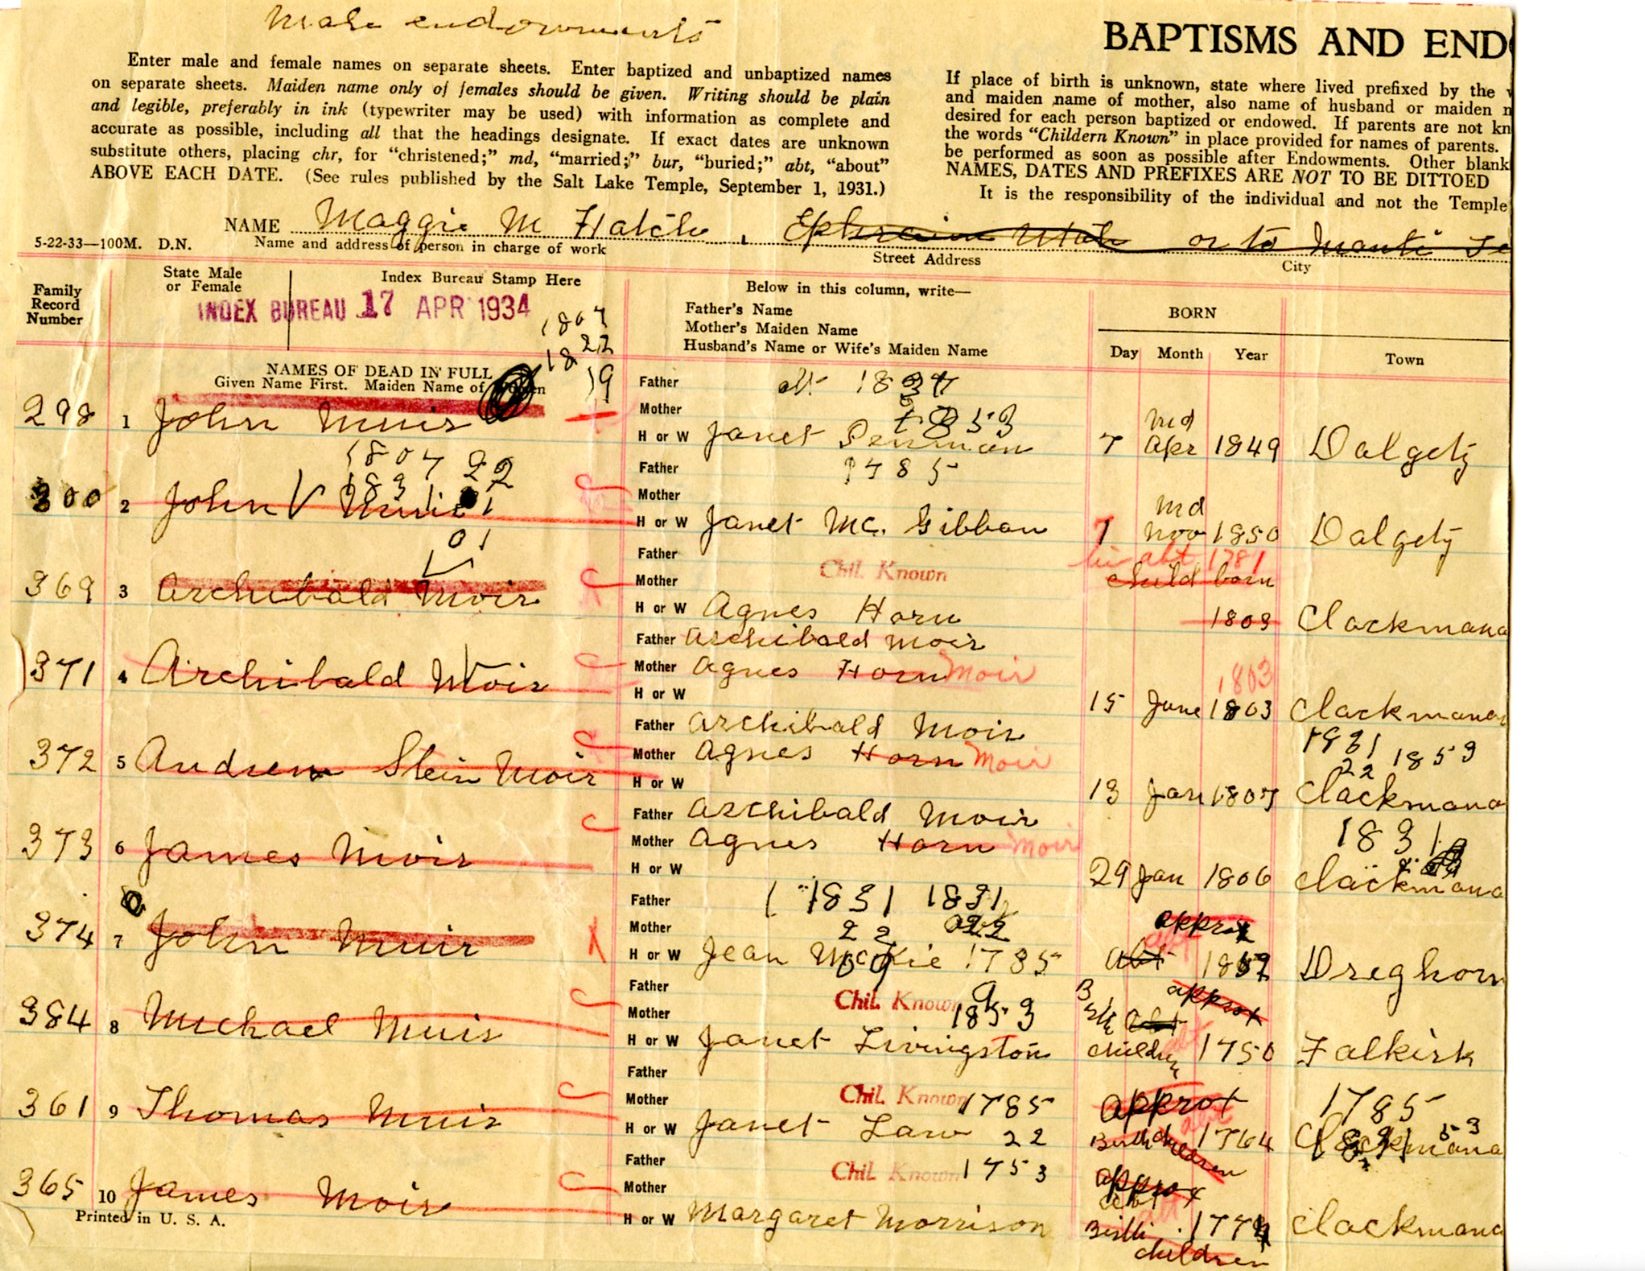 Male endowments
BAPTISMS AND END
Enter male and female names on separate sheets. Enter baptized and unbaptized names
on separate sheets. Maiden name only of females should be given. Writing should be plain
and legible, preferably in ink (typewriter may be used) with information as complete and
accurate as possible, including all that the headings designate. If exact dates are unknown
substitute others, placing chr, for "christened;" md, "married;" bur, "buried;" abt, "about"
ABOVE EACH DATE. (See rules published by the Salt Lake Temple, September 1, 1931.)
If place of birth is unknown, state where lived prefixed by the
and maiden name of mother, also name of husband or maiden
desired for each person baptized or endowed. If parents are not kn
the words "Childern Known" in place provided for names of parents.
be performed as soon as possible after Endowments. Other blank
NAMES, DATES AND PREFIXES ARE NOT TO BE DITTOED
It is the responsibility of the individual and not the Temple
NAME Maggie M Hatch, Ephraim Utah or to Manti Te
5-22-33—100M. D.N. Name and address of person in charge of work Street Address City
Family Record Number
State Male or Female
Index Bureau Stamp Here
INDEX BUREAU 17 APR 1934
1807
1822
19
NAMES OF DEAD IN FULL
Given Name First. Maiden Name of Women
Below in this column, write—
Father's Name
Mother's Maiden Name
Husband's Name or Wife's Maiden Name
BORN
Day Month Year Town
298 1 John Muir
Father
Mother 1853
H or W Janet Penman
md
7 Apr 1849 Dalgety
1807 22
1831
300 2 John Muir
Father 1785
Mother
H or W Janet Mc. Gibbon
md
7 Nov 1850 Dalgety
01
369 3 Archibald Moir
Father Chil. Known
Mother
H or W Agnes Horn
abt 1781
child born
1803 Clackmana
371 4 Archibald Moir
Father Archibald Moir
Mother Agnes Horn Moir
H or W
1803
15 June 1803 Clackmana
372 5 Andrew Stein Moir
Father Archibald Moir
Mother Agnes Horn Moir
H or W
1831
22 1853
13 Jan 1807 Clackmana
373 6 James Moir
Father Archibald Moir
Mother Agnes Horn Moir
H or W
1831
29 Jan 1806 Clackmana
374 7 John Muir
Father 1831 1831
Mother 22 22
H or W Jean McKie 1785
approx
abt Dreghorn
384 8 Michael Muir
Father Chil. Known
Mother 1853
H or W Janet Livingston
approx
abt
children 1750 Falkirk
361 9 Thomas Muir
Father
Mother Chil. Known 1785
H or W Janet Law 22
approx 1785
Birth children 1764 Clackmana
365 10 James Moir
Father Chil. Known 1753
Mother
H or W Margaret Morrison
approx
abt
Birth 1774 Clackmana
children
Printed in U. S. A.